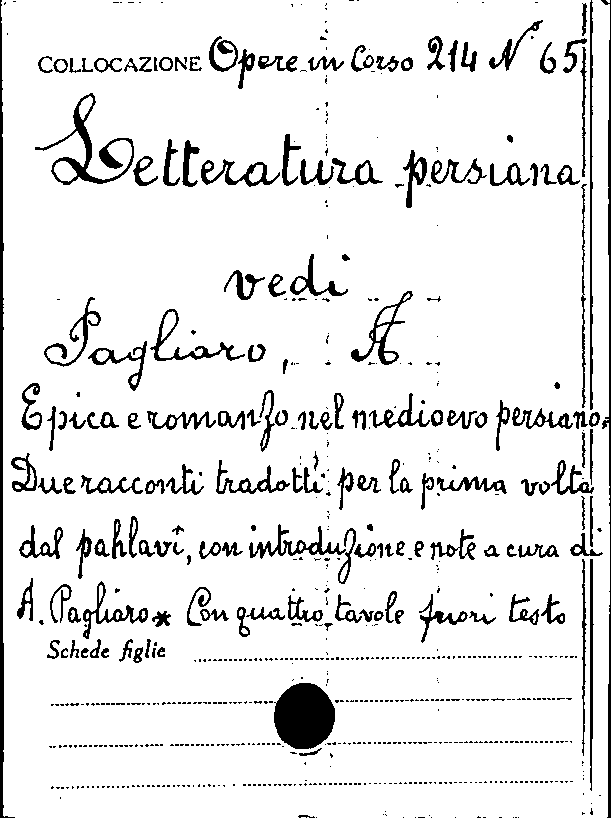 COLLOCAZIONE Opere in Corso 214 N° 65
Letteratura persiana
vedi
Pagliaro, A
Epica e romanzo nel medioevo persiano.
Due racconti tradotti per la prima volta
dal pahlavî, con introduzione e note a cura di
A. Pagliaro * Con quattro tavole fuori testo
Schede figlie